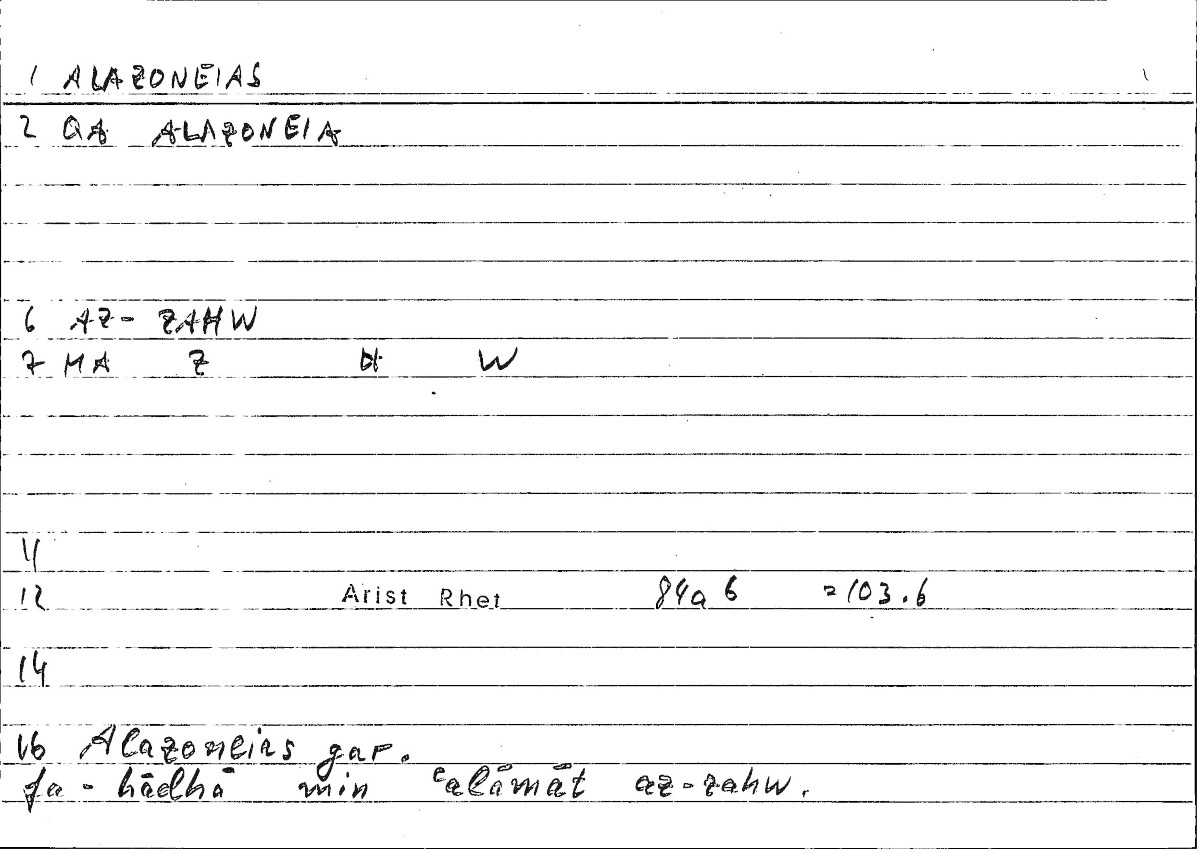 1 ALAZONEIAS
2 QA ALAZONEIA
6 AZ-ZAHW
7 MA Z H W
11
12 Arist Rhet 84a6 =103.6
14
16 Alazoneias gar.
fa-hādhā min ʿalāmāt az-zahw.